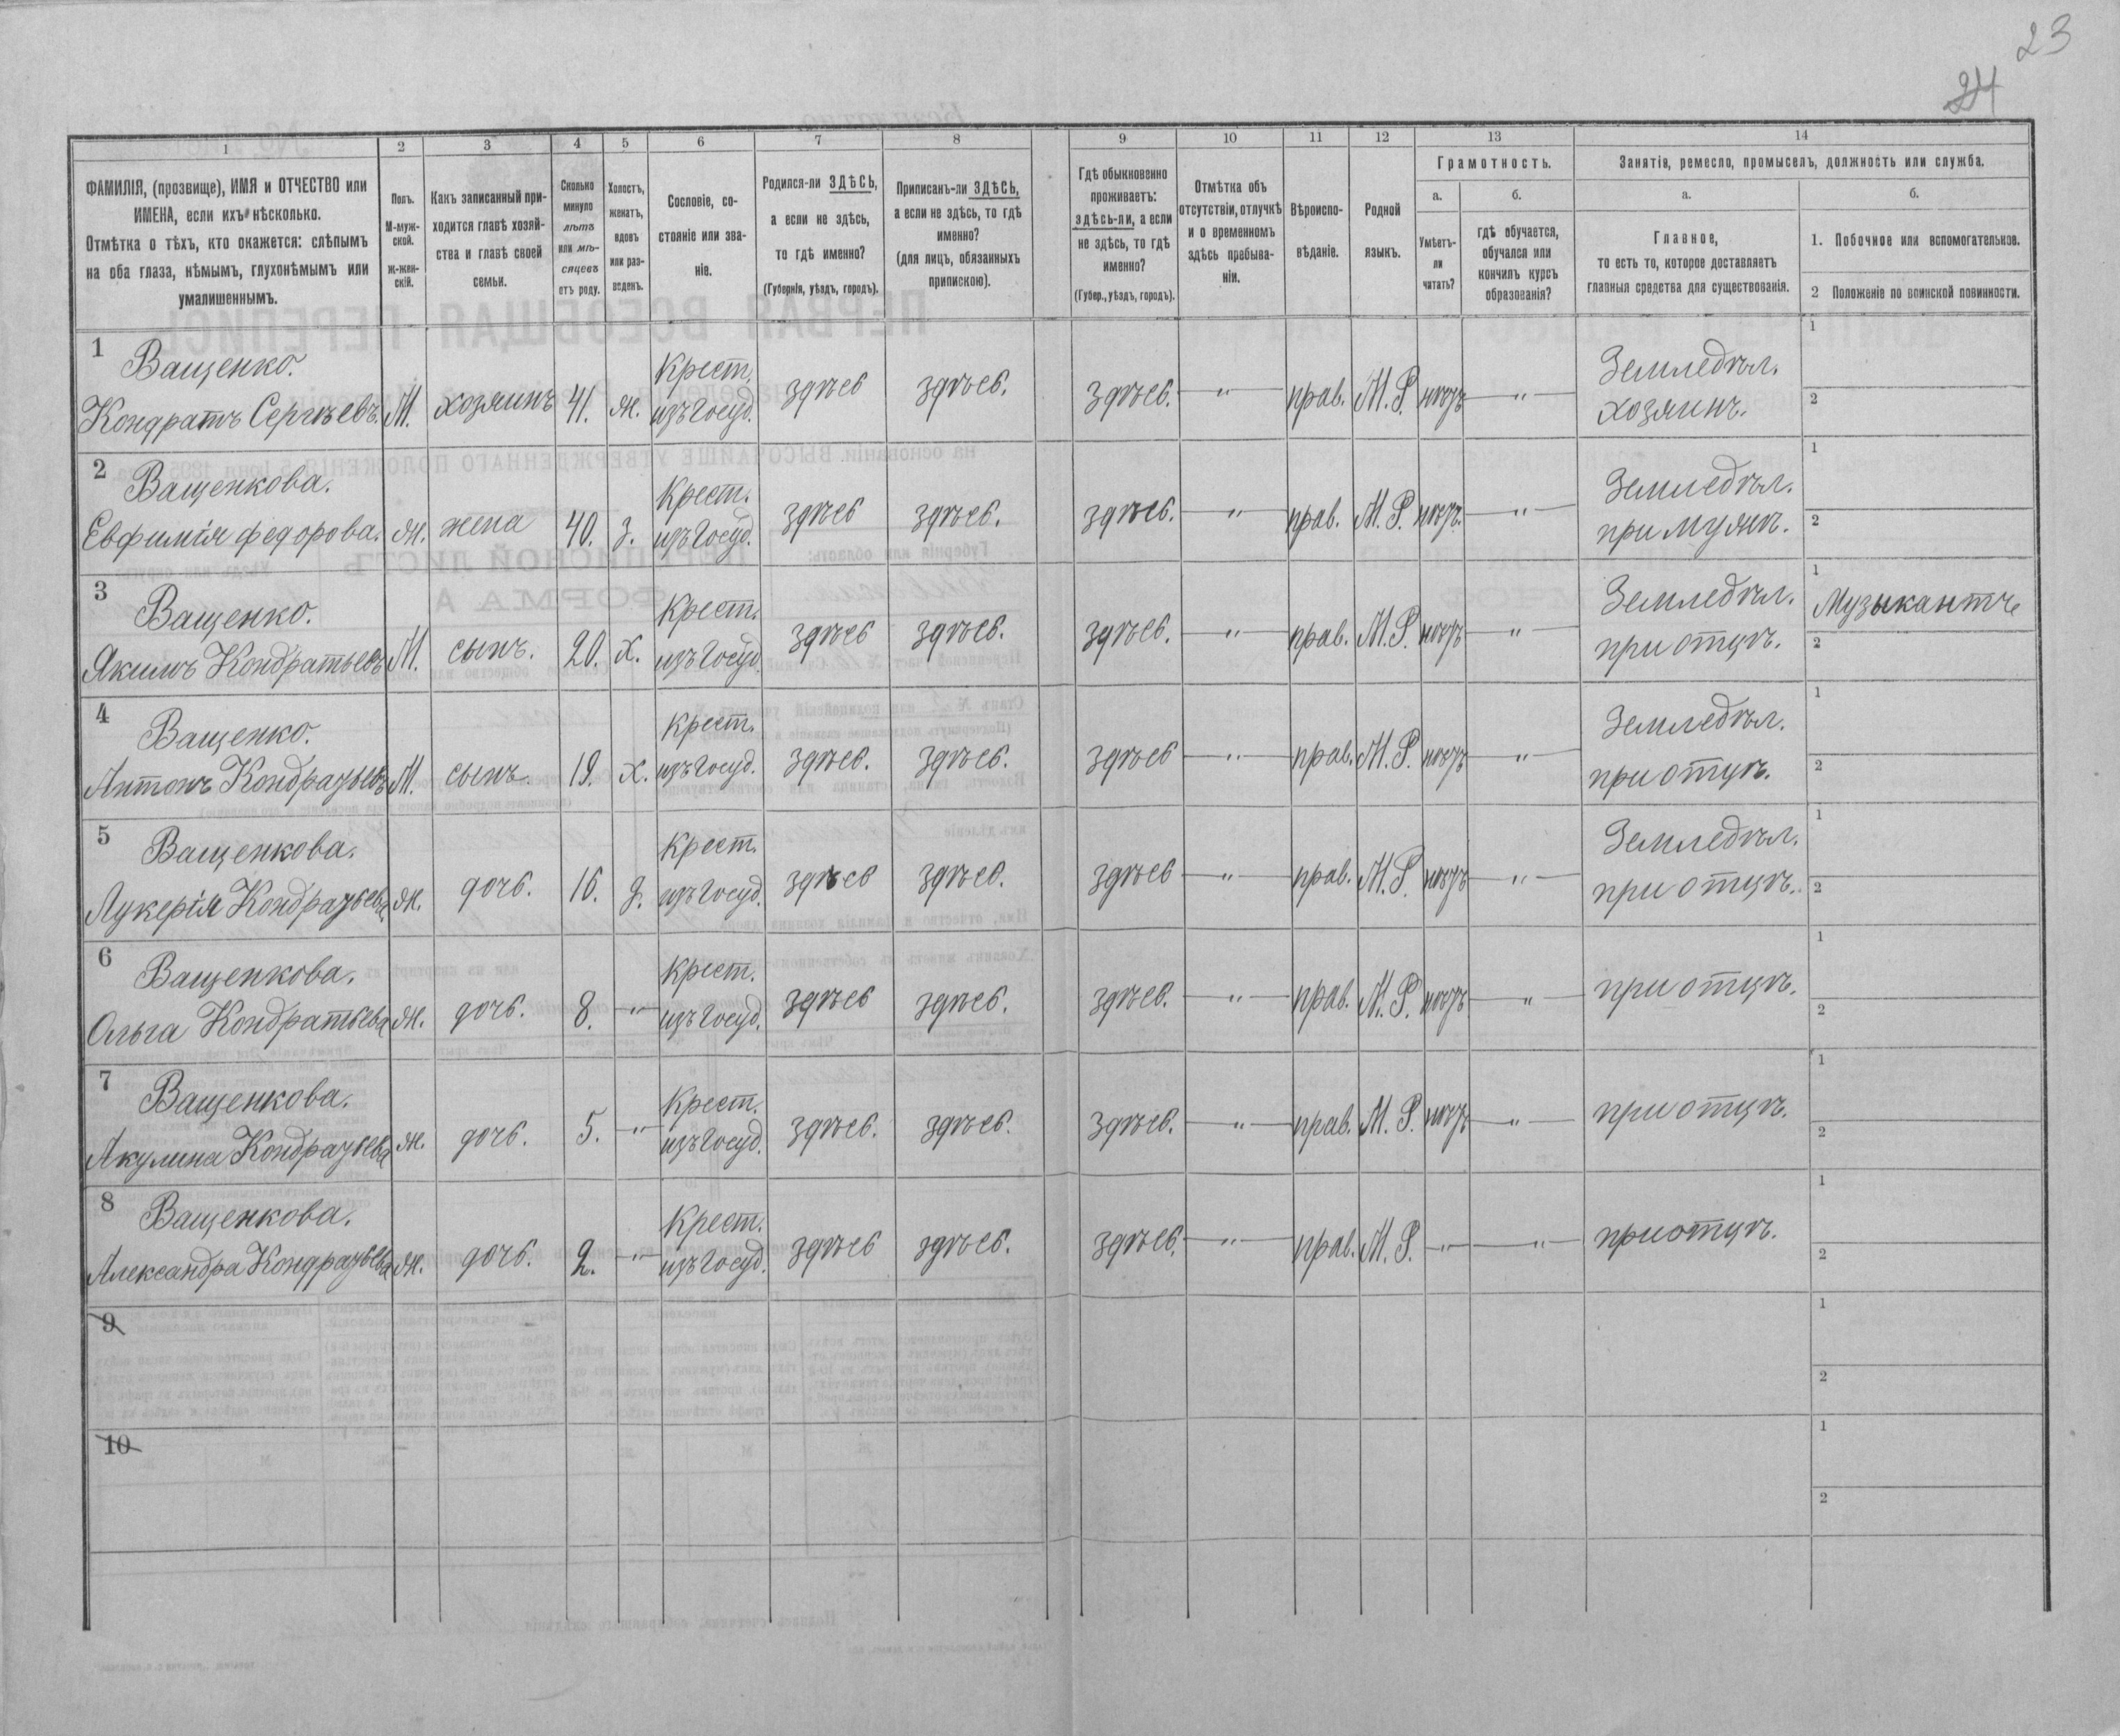 23
24
1
2
3
4
5
6
7
8
9
10
11
12
13
14
ФАМИЛІЯ, (прозвище), ИМЯ и ОТЧЕСТВО или
ИМЕНА, если ихъ нѣсколько.
Отмѣтка о тѣхъ, кто окажется: слѣпымъ
на оба глаза, нѣмымъ, глухонѣмымъ или
умалишеннымъ.
Полъ.
М-муж-
ской.
Ж-жен-
скій.
Какъ записанный при-
ходится главѣ хозяй-
ства и главѣ своей
семьи.
Сколько
минуло
лѣтъ
или мѣ-
сяцевъ
отъ роду.
Холостъ,
женатъ,
вдовъ
или раз-
веденъ.
Сословіе, со-
стояніе или зва-
ніе.
Родился-ли ЗДѢСЬ,
а если не здѣсь,
то гдѣ именно?
(Губернія, уѣздъ, городъ).
Приписанъ-ли ЗДѢСЬ,
а если не здѣсь, то гдѣ
именно?
(для лицъ, обязанныхъ
припискою).
Гдѣ обыкновенно
проживаетъ:
здѣсь-ли, а если
не здѣсь, то гдѣ
именно?
(Губер., уѣздъ, городъ).
Отмѣтка объ
отсутствіи, отлучкѣ
и о временномъ
здѣсь пребыва-
ніи.
Вѣроиспо-
вѣданіе.
Родной
языкъ.
Грамотность.
а.
Умѣетъ-
ли
читать?
б.
гдѣ обучается,
обучался или
кончилъ курсъ
образованія?
Занятія, ремесло, промыселъ, должность или служба.
а.
Главное,
то есть то, которое доставляетъ
главныя средства для существованія.
б.
1. Побочное или вспомогательное.
2 Положеніе по воинской повинности.
1
Ващенко.
Кондратъ Сергѣевъ. М. хозяинъ 41. ж. Крест. изъ Госуд. здѣсь здѣсь. здѣсь. — " — прав. М. Р. нѣтъ — " — Земледѣл. хозяинъ.
1
2
2
Ващенкова.
Евфимія Федорова. Ж. жена 40. з. Крест. изъ Госуд. здѣсь здѣсь. здѣсь. — " — прав. М. Р. нѣтъ. — " — Земледѣл. при мужѣ.
1
2
3
Ващенко.
Якимъ Кондратьевъ М. сынъ. 20. х. Крест. изъ Госуд. здѣсь здѣсь. здѣсь. — " — прав. М. Р. нѣтъ — " — Земледѣл. при отцѣ.
1
Музыкантъ
2
4
Ващенко.
Антонъ Кондратьевъ М. сынъ. 19. х. Крест. изъ Госуд. здѣсь. здѣсь. здѣсь — " — прав. М. Р. нѣтъ — " — Земледѣл. при отцѣ.
1
2
5
Ващенкова.
Лукерія Кондратьева Ж. дочь. 16. д. Крест. изъ Госуд. здѣсь здѣсь. здѣсь — " — прав. М. Р. нѣтъ — " — Земледѣл. при отцѣ.
1
2
6
Ващенкова.
Ольга Кондратьева Ж. дочь. 8. — " — Крест. изъ Госуд. здѣсь здѣсь. здѣсь. — " — прав. М. Р. нѣтъ — " — при отцѣ.
1
2
7
Ващенкова.
Акулина Кондратьева Ж. дочь. 5. — " — Крест. изъ Госуд. здѣсь. здѣсь. здѣсь. — " — прав. М. Р. нѣтъ — " — при отцѣ.
1
2
8
Ващенкова.
Александра Кондратьева Ж. дочь. 2. — " — Крест. изъ Госуд. здѣсь здѣсь. здѣсь. — " — прав. М. Р. — " — — " — при отцѣ.
1
2
9
1
2
10
1
2